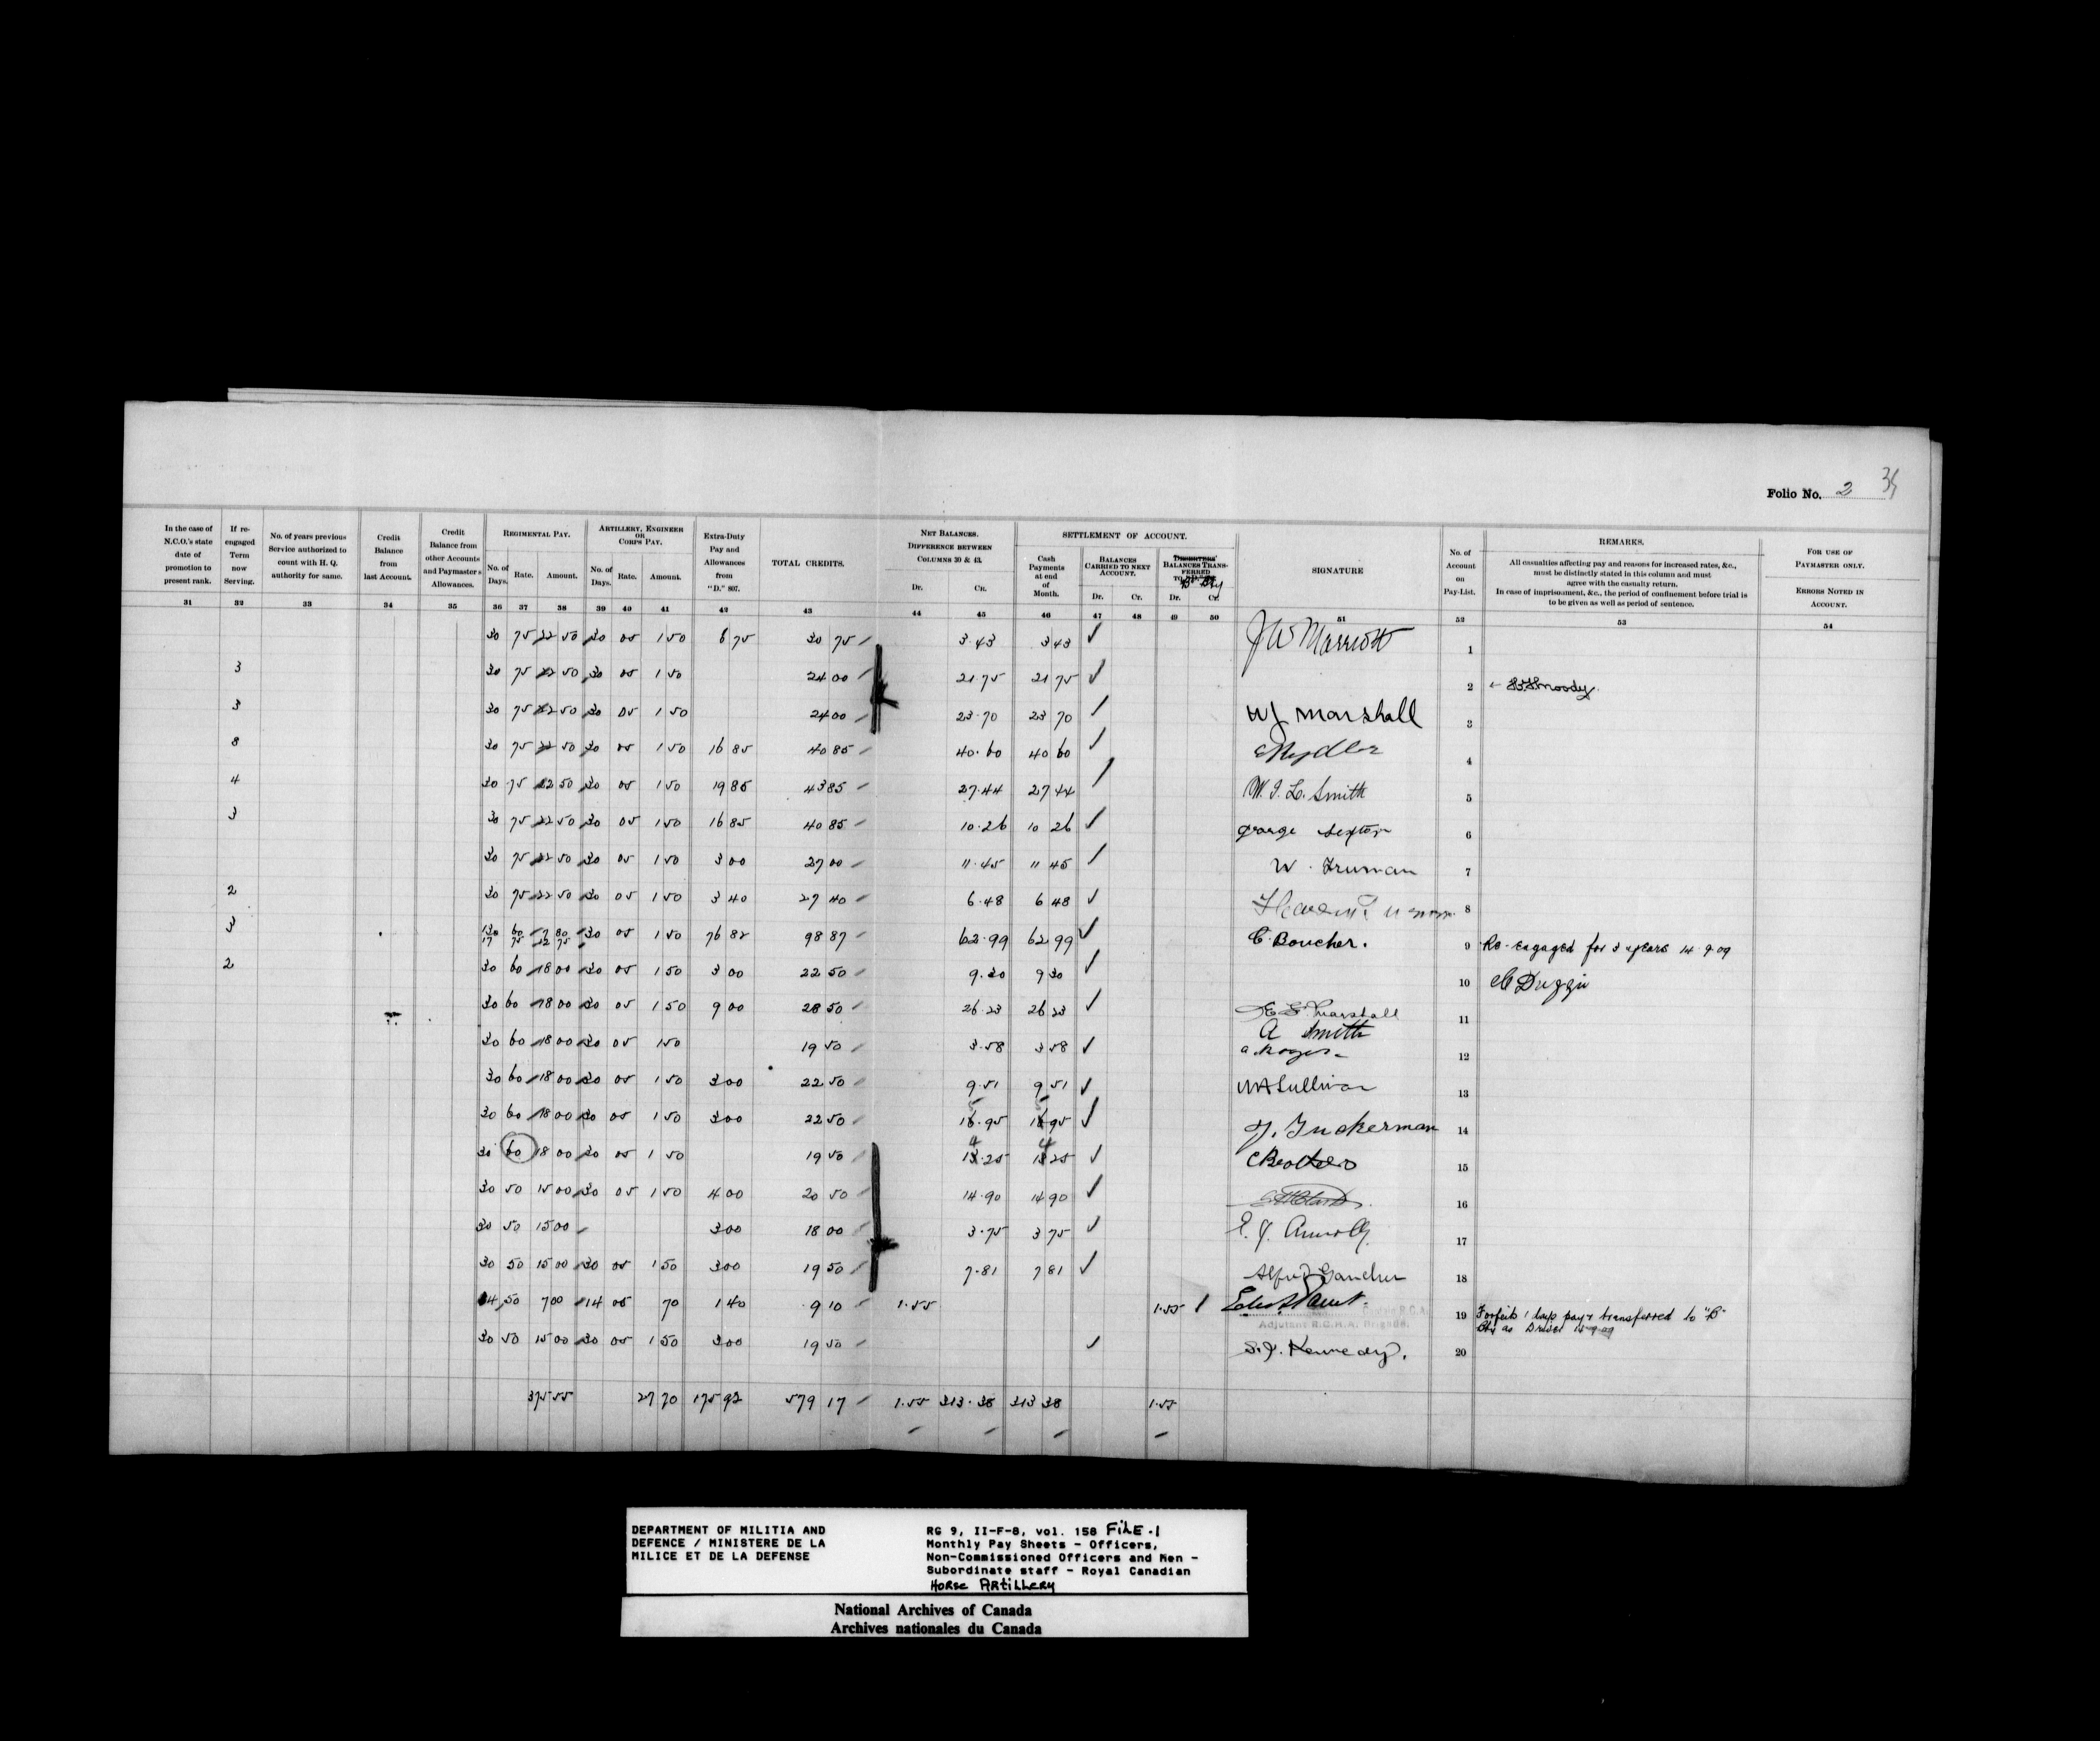 Folio No. 2 34
In the case of N.C.O.'s state date of promotion to present rank.
If re-engaged Term now Serving.
No. of years previous Service authorized to count with H. Q. authority for same.
Credit Balance from last Account.
Credit Balance from other Accounts and Paymaster's Allowances.
REGIMENTAL PAY.
No. of Days. Rate. Amount.
ARTILLERY, ENGINEER OR CORPS PAY.
No. of Days. Rate. Amount.
Extra-Duty Pay and Allowances from "D." 807.
TOTAL CREDITS.
NET BALANCES.
DIFFERENCE BETWEEN COLUMNS 30 & 43.
Dr. Cr.
SETTLEMENT OF ACCOUNT.
Cash Payments at end of Month.
BALANCES CARRIED TO NEXT ACCOUNT.
Dr. Cr.
BALANCES TRANSFERRED TO "B" Bty
Dr. Cr.
SIGNATURE
No. of Account on Pay-List.
REMARKS.
All casualties affecting pay and reasons for increased rates, &c., must be distinctly stated in this column and must agree with the casualty return.
In case of imprisonment, &c., the period of confinement before trial is to be given as well as period of sentence.
FOR USE OF PAYMASTER ONLY.
ERRORS NOTED IN ACCOUNT.
31 32 33 34 35 36 37 38 39 40 41 42 43 44 45 46 47 48 49 50 51 52 53 54
30 75 22 50 30 05 1 50 6 75 30 75 3.43 3 43 ✓ J W Marriott 1
3 30 75 22 50 30 05 1 50 24 00 21.75 21 75 ✓ 2 Moody
3 30 75 22 50 30 05 1 50 24 00 23.70 23 70 ✓ W J Marshall 3
8 30 75 22 50 30 05 1 50 16 85 40 85 40.60 40 60 ✓ 4
4 30 75 22 50 30 05 1 50 19 85 43 85 27.44 27 44 ✓ W. J. L. Smith 5
3 30 75 22 50 30 05 1 50 16 85 40 85 10.26 10 26 ✓ George Sexton 6
30 75 22 50 30 05 1 50 3 00 27 00 11.45 11 45 ✓ W. Truman 7
2 30 75 22 50 30 05 1 50 3 40 27 40 6.48 6 48 ✓ 8
3 13 60 7 80 30 05 1 50 76 82 98 87 62.99 62.99 ✓ C. Boucher. 9 Re-engaged for 3 years 14 9 09
17 75 12 75
2 30 60 18 00 30 05 1 50 3 00 22 50 9.30 9 30 ✓ 10 Duggin
30 60 18 00 30 05 1 50 9 00 28 50 26.23 26 23 ✓ Marshall 11
A Smith
30 60 18 00 30 05 1 50 19 50 3.58 3 58 ✓ 12
30 60 18 00 30 05 1 50 3 00 22 50 9.51 9 51 ✓ Sullivan 13
30 60 18 00 30 05 1 50 3 00 22 50 15.95 15 95 ✓ J. Tuckerman 14
30 60 18 00 30 05 1 50 19 50 14.25 14 25 ✓ 15
30 50 15 00 30 05 1 50 4 00 20 50 14.90 14 90 ✓ 16
30 50 15 00 3 00 18 00 3.75 3 75 ✓ 17
30 50 15 00 30 05 1 50 3 00 19 50 7.81 7 81 ✓ 18
14 50 7 00 14 05 70 1 40 9 10 1.55 1.55 19 Forfeits 1 days pay & transferred to "B"
Adjutant R.C.H.A. Brigade. Bty as Driver 15-9-09
30 50 15 00 30 05 1 50 3 00 19 50 ✓ Kennedy. 20
375 55 27 70 175 92 579 17 1.55 313.38 313 38 1.55
DEPARTMENT OF MILITIA AND
DEFENCE / MINISTERE DE LA
MILICE ET DE LA DEFENSE
RG 9, II-F-8, vol. 158 FILE.1
Monthly Pay Sheets - Officers,
Non-Commissioned Officers and Men -
Subordinate staff - Royal Canadian
HORSE ARTILLERY
National Archives of Canada
Archives nationales du Canada